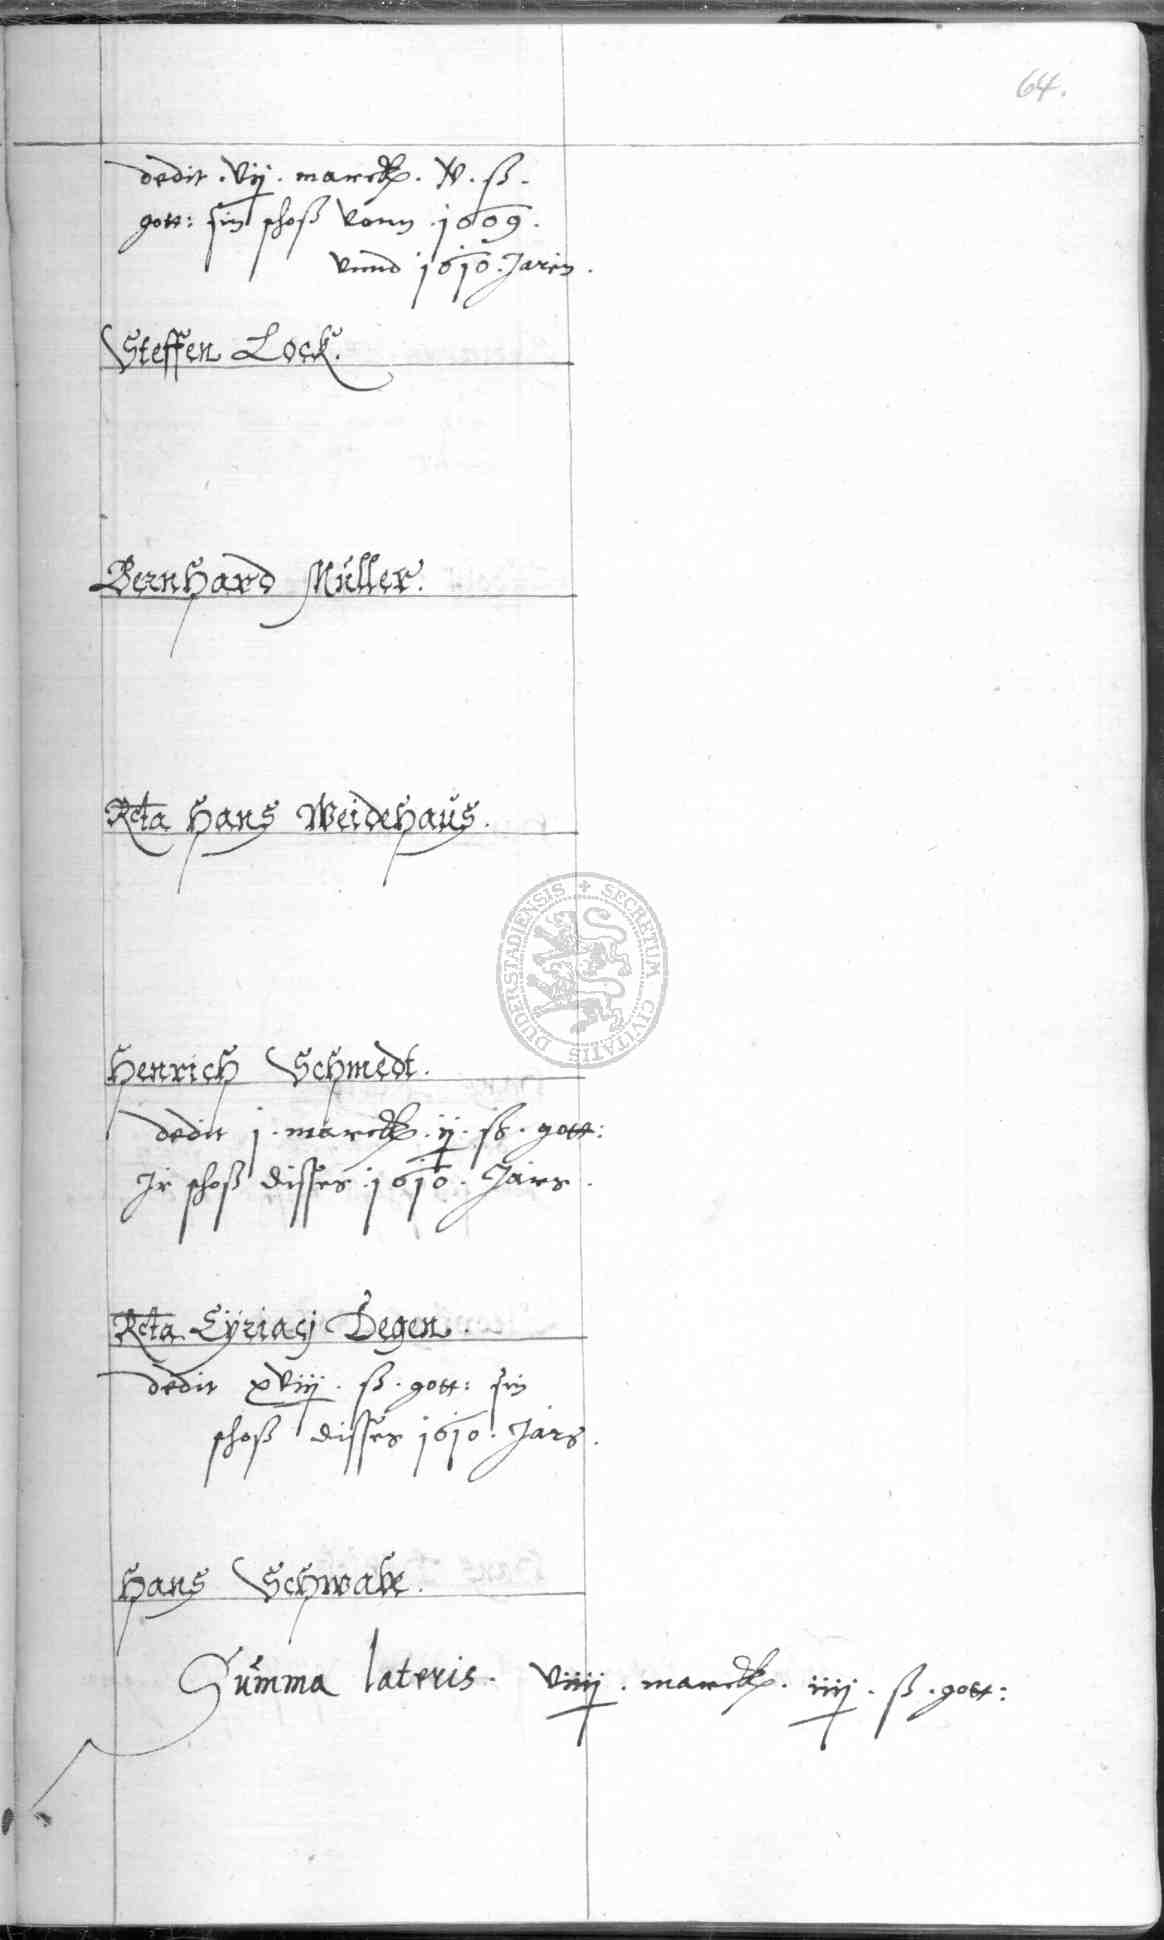 64.
dedit . vij . marck . xv . ß .
gott: sin schoß vonn . 1609 .
vnnd 1610 . Jaren .
Steffen Lock .
Bernhard Müller .
Rcta Hans Weidehaus .
DUDERSTADIENSIS + SECRETUM CIVITATIS
Henrich Schmedt .
dedit j . marck . ij . ß . gott:
Jr schoß disses . 1610 . Jars .
Rcta Cyriacj Degen .
dedit xviij . ß . gott: sin
schoß disses 1610 . Jars .
Hans Schwabe .
Summa lateris . viiij . marck . iiij . ß . gott: